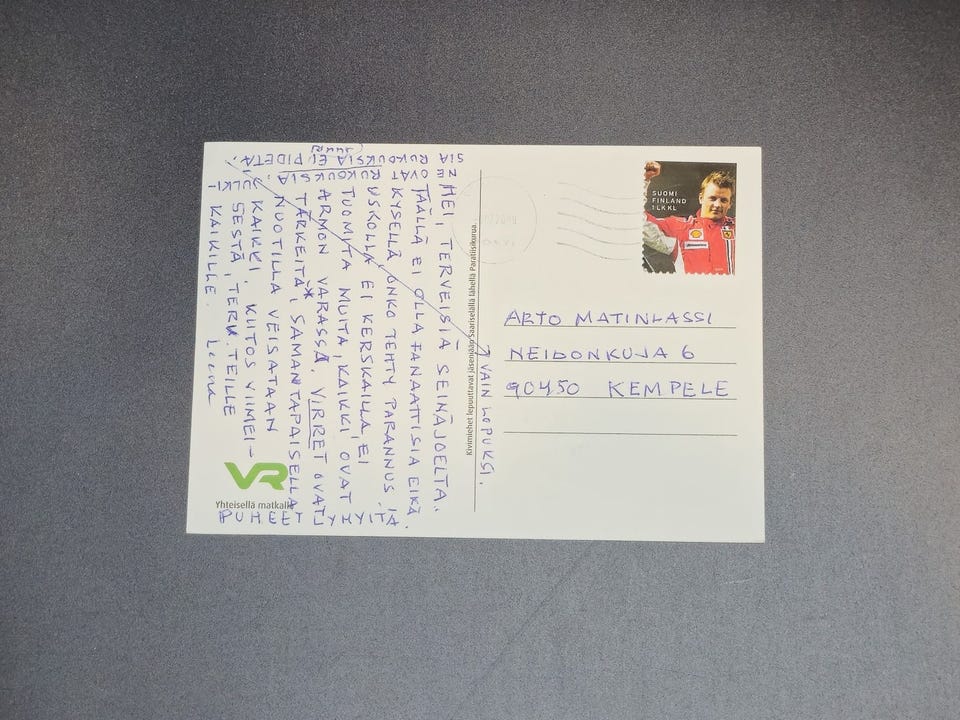 HEI, TERVEISIÄ SEINÄJOELTA.
TÄÄLLÄ EI OLLA FANAATTISIA EIKÄ
KYSELLÄ ONKO TEHTY PARANNUS JA
USKOLLA EI KERSKAILLA, EI
TUOMITA MUITA, KAIKKI OVAT
ARMON VARASSA. VIRRET OVAT
TÄRKEITÄ, SAMANTAPAISELLA
NUOTILLA VEISATAAN
KAIKKI. KIITOS VIIMEI-
SESTÄ, TERV. TEILLE
KAIKILLE. Leena
PUHEET LYHYITÄ.
JULKI-
SIA RUKOUKSIA EI PIDETÄ.
(juuri
NE OVAT RUKOUKSIA.
VAIN LOPUKSI.
VR
Yhteisellä matkalla
Kivimiehet lepuuttavat jäseniään Saariselällä lähellä Paratiisikurua.
SUOMI
FINLAND
1 LK KL
ARTO MATINLASSI
NEIDONKUJA 6
90450 KEMPELE